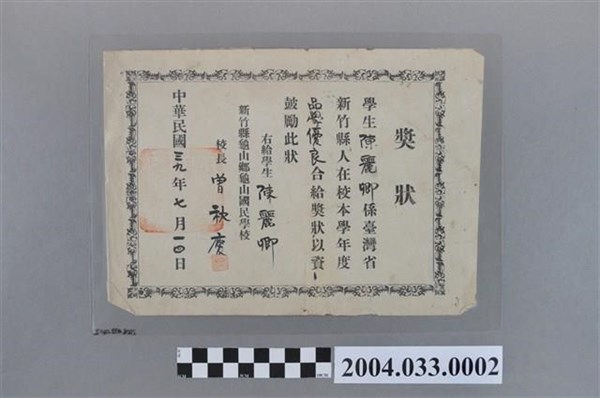 獎狀
學生陳麗卿係臺灣省
新竹縣人在校本學年度
品學優良合給獎狀以資
鼓勵此狀
右給學生 陳麗卿
新竹縣龜山鄉龜山國民學校
校長 曾秋慶
中華民國三九年七月一四日
2004.033.0002